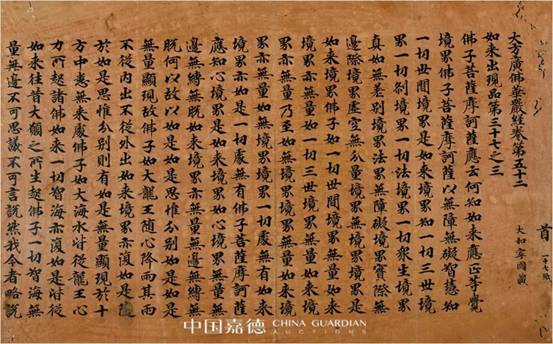 大和寧國藏
首
大方廣佛華嚴經卷第五十二
如來出現品第三十七之三
佛子菩薩摩訶薩應云何知如來應正等覺
境界佛子菩薩摩訶薩以無障無礙智慧知
一切世間境界是如來境界知一切三世境
界一切剎境界一切法境界一切衆生境界
真如無差別境界法界無障礙境界實際無
邊際境界虛空無分量境界無境界境界是
如來境界佛子如一切世間境界無量如來
境界亦無量如一切三世境界無量如來境
界亦無量乃至如無境界境界無量如來境
界亦無量如無境界境界一切處無有如來
境界亦如是一切處無有佛子菩薩摩訶薩
應知心境界是如來境界如心境界無量無
邊無縛無脫如來境界亦無量無邊無縛無
脫何以故以如是如是思惟分別如是如是
無量顯現故佛子如大龍王隨心降雨其雨
不從內出不從外出如來境界亦復如是隨
於如是思惟分別則有如是無量顯現於十
方中悉無來處佛子如大海水皆從龍王心
力所起諸佛如來一切智海亦復如是皆從
如來往昔大願之所生起佛子一切智海無
量無邊不可思議不可言說然我今者略說
中国嘉德 CHINA GUARDIAN
AUCTIONS